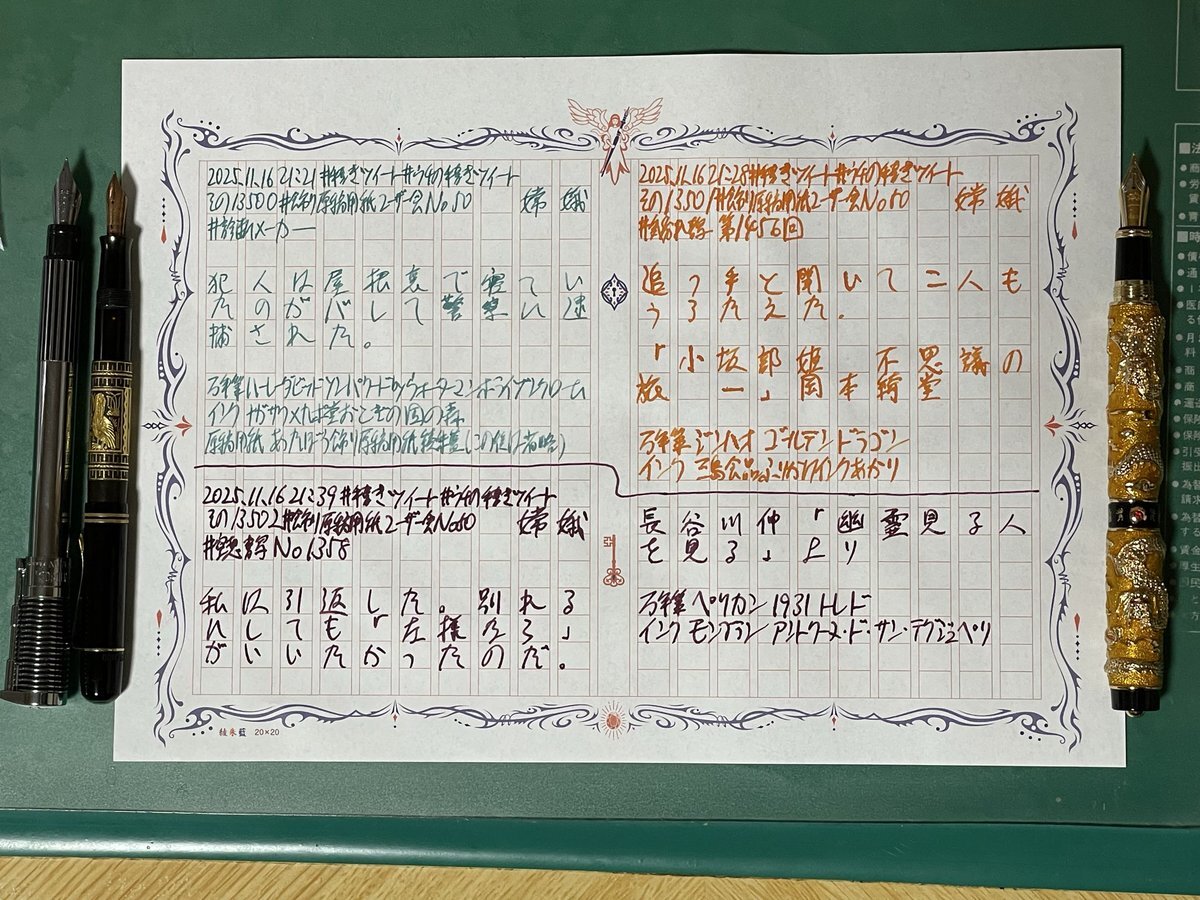 2025.11.16 21:21 #手書きツイート #うちの手書きツイート
その13500 #飾り原稿用紙ユーザー会No50 嫦娥
#診断メーカー
犯人は屋根裏で寝てい
たのがバレて警察に逮
捕された。
万年筆 ハーレーダビッドソンバイウォーターマン
インク かおとぎの国の森
原稿用紙 あたぼう飾り原稿用紙綾朱藍(この後は省略)
2025.11.16 21:39 #手書きツイート #うちの手書きツイート
その13502 #飾り原稿用紙ユーザー会No50 嫦娥
No1358
私は引返した。別れる
にしても「左様なら」
がいいたかったのだ。
2025.11.16 21:28 #手書きツイート #うちの手書きツイート
その13501 #飾り原稿用紙ユーザー会No50 嫦娥
第1456回
追っ手と聞いて二人も
うろたえた.
「小坂部姫 不思議の
旅 一」岡本綺堂
万年筆 ジンハオ ゴールデンドラゴン
インク 三島食品 ふりかけインクあかり
長谷川伸「幽霊見る人
を見る」より
万年筆 ペリカン 1931 トレド
インク モンブラン アントワーヌ・ド・サン・テグジュペリ
綾朱藍 20×20